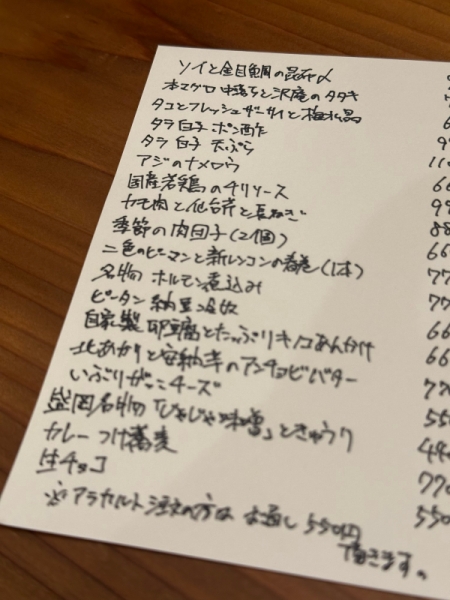 ソイと金目鯛の昆布〆
本マグロ中落ちと沢庵のタタキ
タコとフレッシュザーサイと梅水晶 6
タラ白子 ポン酢 99
タラ 白子 天ぷら
アジのナメロウ 110
国産若鶏のチリソース 66
カモ肉と仙台芹と長ねぎ 99
季節の肉団子(2個) 88
二色のピーマンと新レンコンの春巻(1本) 66
名物 ホルモン煮込み 77
ピータン 納豆 77
自家製 卵豆腐とたっぷりキノコあんかけ 66
北あかりと安納芋のアンチョビバター 66
いぶりがっこチーズ 770
盛岡名物「じゃじゃ味噌」ときゅうり 550
カレーつけ蕎麦 440
生チョコ 770
※アラカルト注文の方は お通し 550円 550
頂きます。